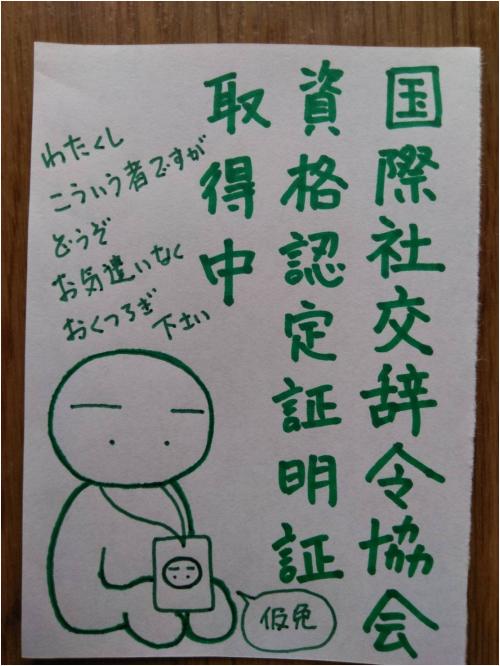 国際社交辞令協会
資格認定証明証
取得中
わたくし
こういう者ですが
どうぞ
お気遣いなく
おくつろぎ
下士い
仮免